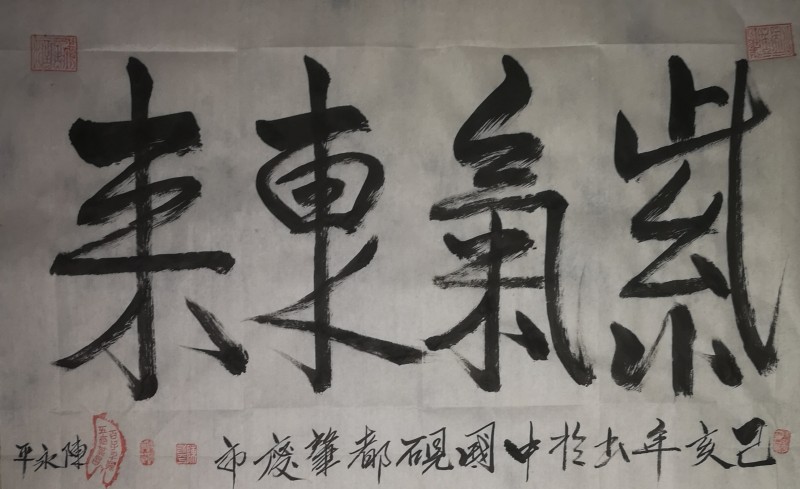 紫氣東来
己亥年书於中國硯都肇慶市
陳永平